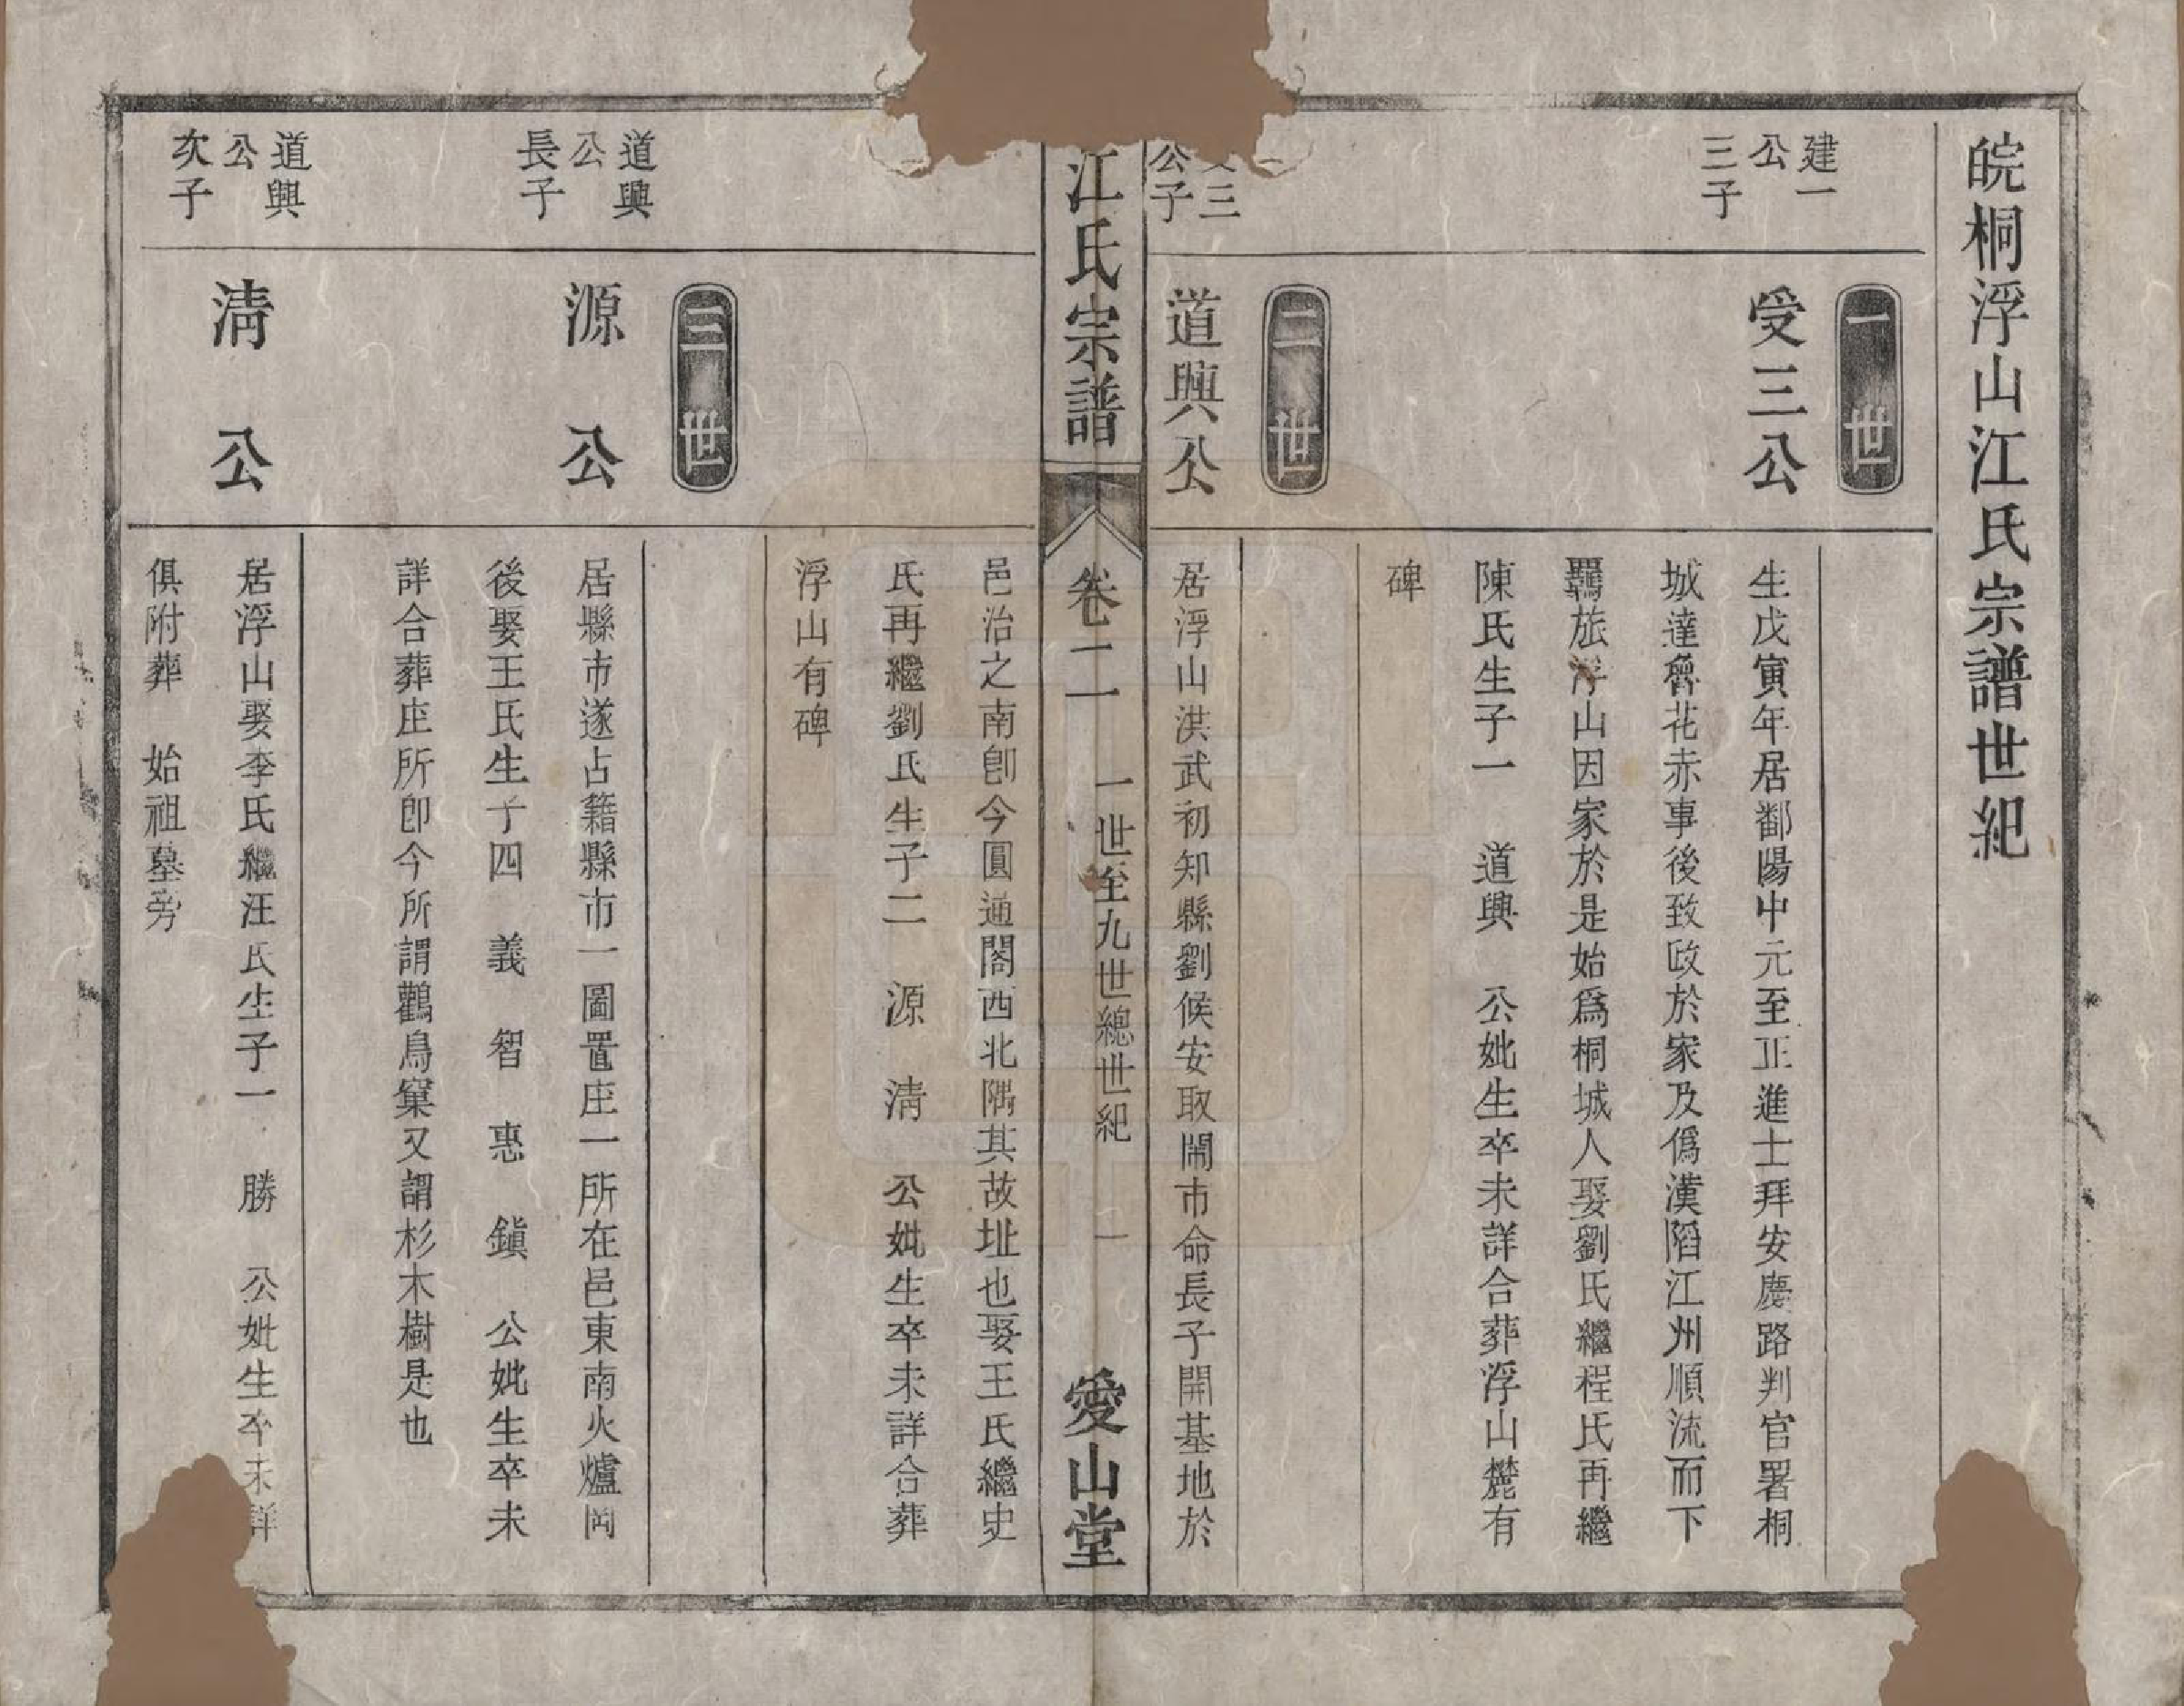 皖桐浮山江氏宗譜世紀
一世
建一
公
三子
受三公
生戊寅年居鄱陽中元至正進士拜安慶路判官署桐
城達魯花赤事後致政於家及僞漢陷江州順流而下
羈旅浮山因家於是始爲桐城人娶劉氏繼程氏再繼
陳氏生子一　道興　公妣生卒未詳合葬浮山麓有
碑
二世
三
公子
道興公
居浮山洪武初知縣劉候安取鬧市命長子開基地於
江氏宗譜
卷二　一世至九世總世紀　一
愛山堂
邑治之南卽今圓通閣西北隅其故址也娶王氏繼史
氏再繼劉氏生子二　源　淸　公妣生卒未詳合葬
浮山有碑
三世
道興
公
長子
源公
居縣市遂占籍縣市一圖置庄一所在邑東南火爐岡
後娶王氏生子四　義　智　惠　鎭　公妣生卒未
詳合葬庄所卽今所謂鸛鳥窠又謂杉木樹是也
道興
公
次子
淸公
居浮山娶李氏繼汪氏生子一　勝　公妣生卒未詳
俱附葬　始祖墓旁